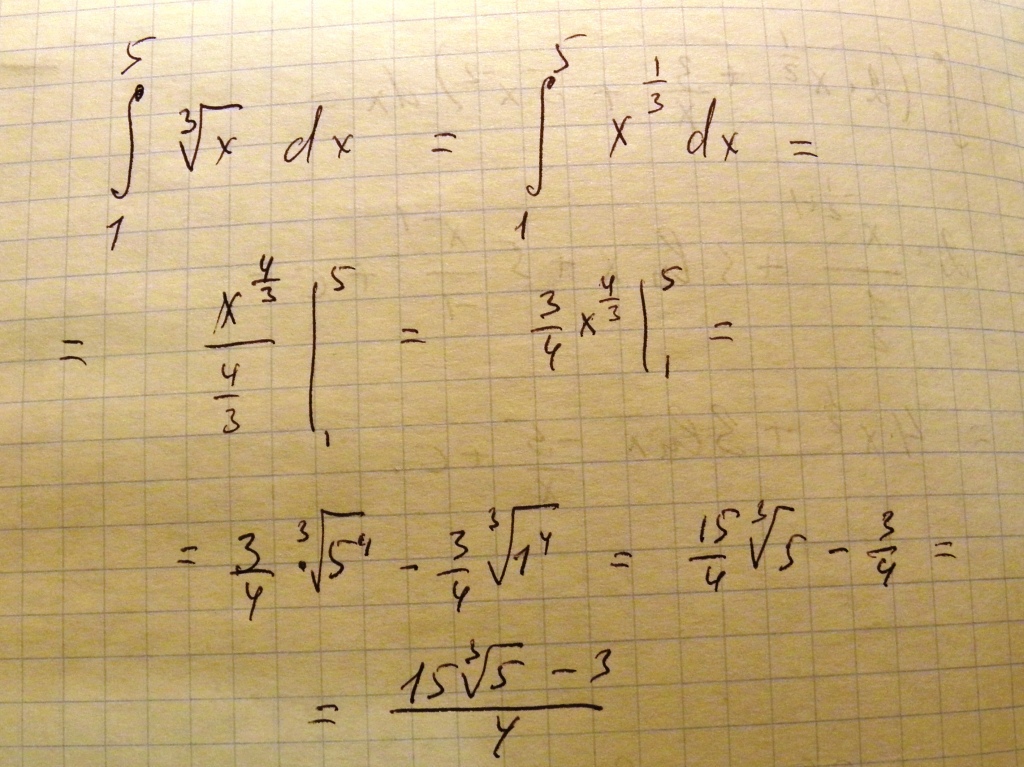 ∫₁⁵ ∛x dx = ∫₁⁵ x^(1/3) dx =
= x^(4/3)/(4/3) |₁⁵ = 3/4 x^(4/3) |₁⁵ =
= 3/4 · ∛5⁴ - 3/4 ∛1⁴ = 15/4 ∛5 - 3/4 =
= (15∛5 - 3)/4